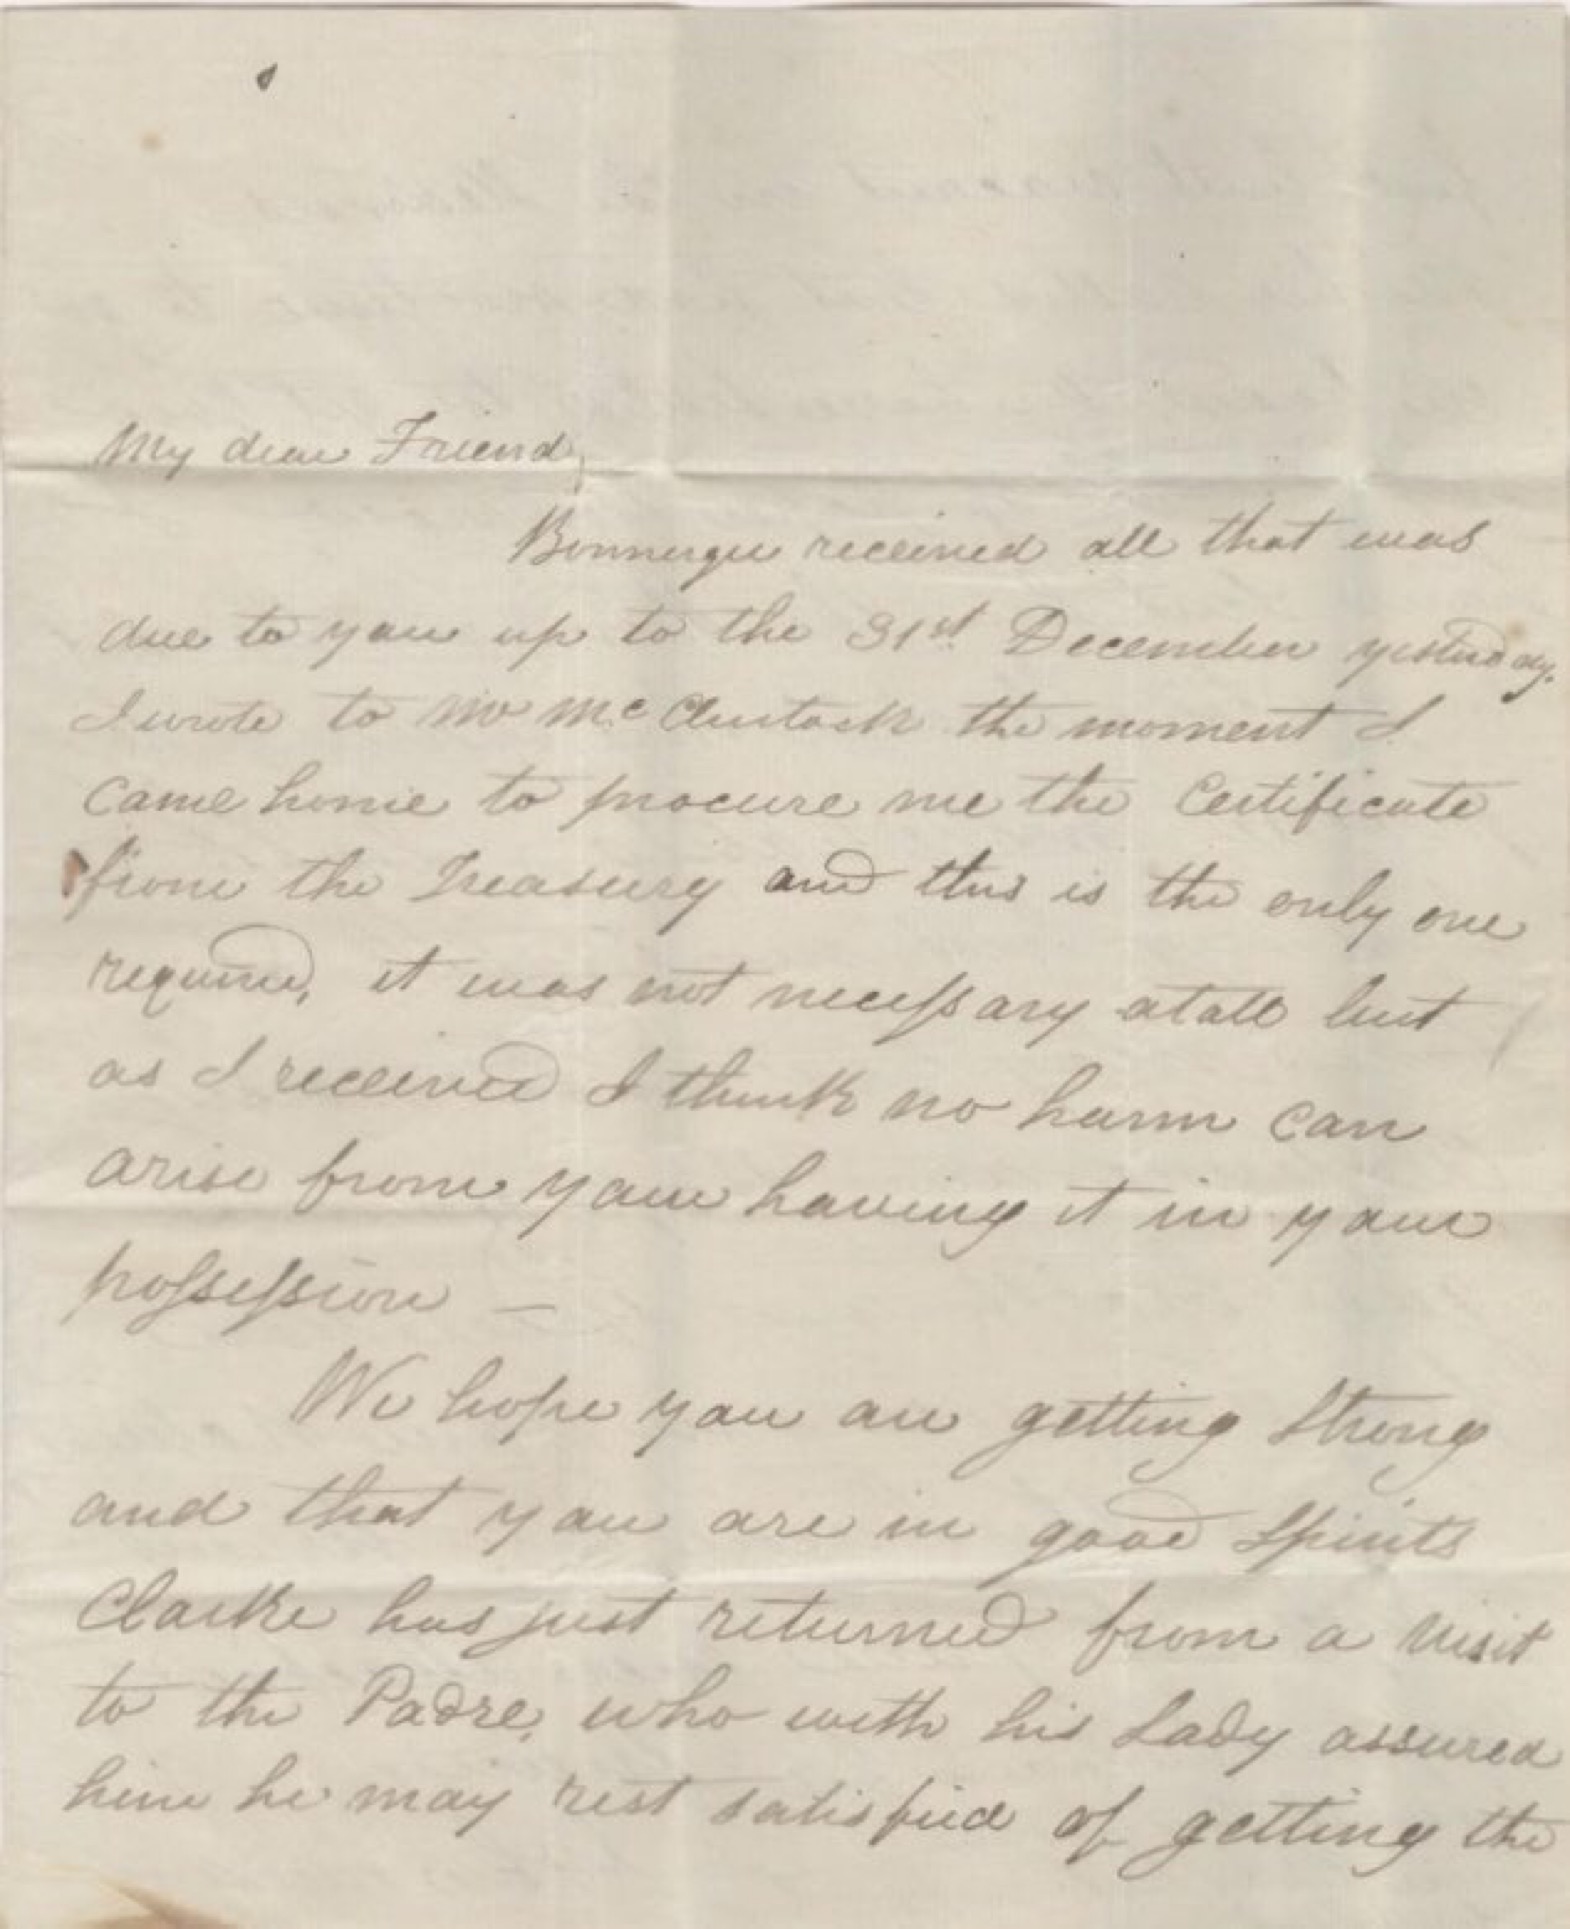 My dear Friend,
received all that was
due to you up to the 31st. December yesterday.
I wrote to Mr Mc Clintock the moment I
came home to procure me the Certificate
from the Treasury and this is the only one
required, it was not necessary atall but
as I received I think no harm can
arise from your having it in your
possession —
We hope you are getting Strong
and that you are in good Spirits
Clarke has just returned from a visit
to the Padre, who with his Lady assured
him he may rest satisfied of getting the